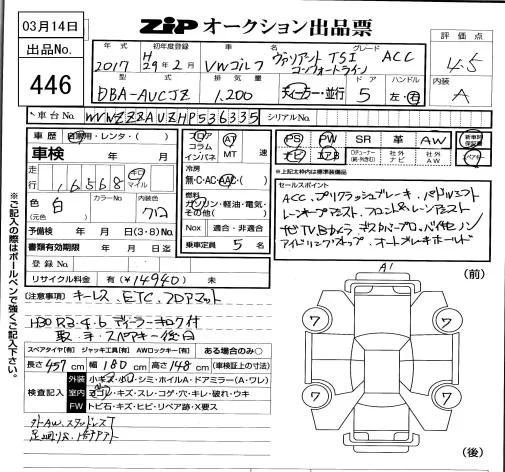 03月14日
ZIP オークション出品票
出品No.
446
年式 初年度登録 車名 グレード
2017 H29年2月 VWゴルフ ヴァリアント TSI コンフォートライン ACC
評価点
4.5
型式 排気量 ドア ハンドル
DBA-AUCJZ 1,200 ディーラー・並行 5 左・右
内装
A
車台No. WVWZZZAUZHP536335 シリアルNo.
車歴 自家用・レンタ・( )
車検 年 月
フロア コラム インパネ
AT MT 速
PS PW SR 革 AW
ナビ エアB
社外ナビ 社外AW
新車時保証書
スペアキー
※上記太枠内は標準装備品
走行 16568 キロ マイル
冷房
無・C・AC・AAC・( )
色 白 カラーNo. 内装色 クロ
(元色 )
燃料
ガソリン・軽油・電気・
その他( )
予備検 年 月 日(3・8)No.
Nox 適合・非適合
書類有効期限 年 月 日迄
乗車定員 5 名
登録No.
リサイクル料金 有(¥14940) 未
セールスポイント
ACC、プリクラッシュブレーキ、パドルシフト
レーンキープアシスト、フロント&レーンアシスト
地TV、Bカメラ
アイドリングストップ、オートブレーキホールド
[注意事項] キーレス、ETC、フロアマット
H30 R3.4.6 ディーラーキロク付
取・手・スペアキー後日
スペアタイヤ[有] ジャッキ工具[有] AWロックキー[有] ある場合のみ○
長さ 457 cm 幅 180 cm 高さ 148 cm (車検証上の寸法)
検査記入
外装 小キズ・小ヘコ・シミ・ホイルA・ドアミラー(A・ワレ)
室内 ヨゴレ・キズ・スレ・コゲ・穴・キレ・破れ・ウキ
FW トビ石・キズ・ヒビ・リペア跡・X要ス
外AW、スタッドレス
A1
(前)
7 7
7 7
(後)
※ご記入の際はボールペンで強くご記入下さい。